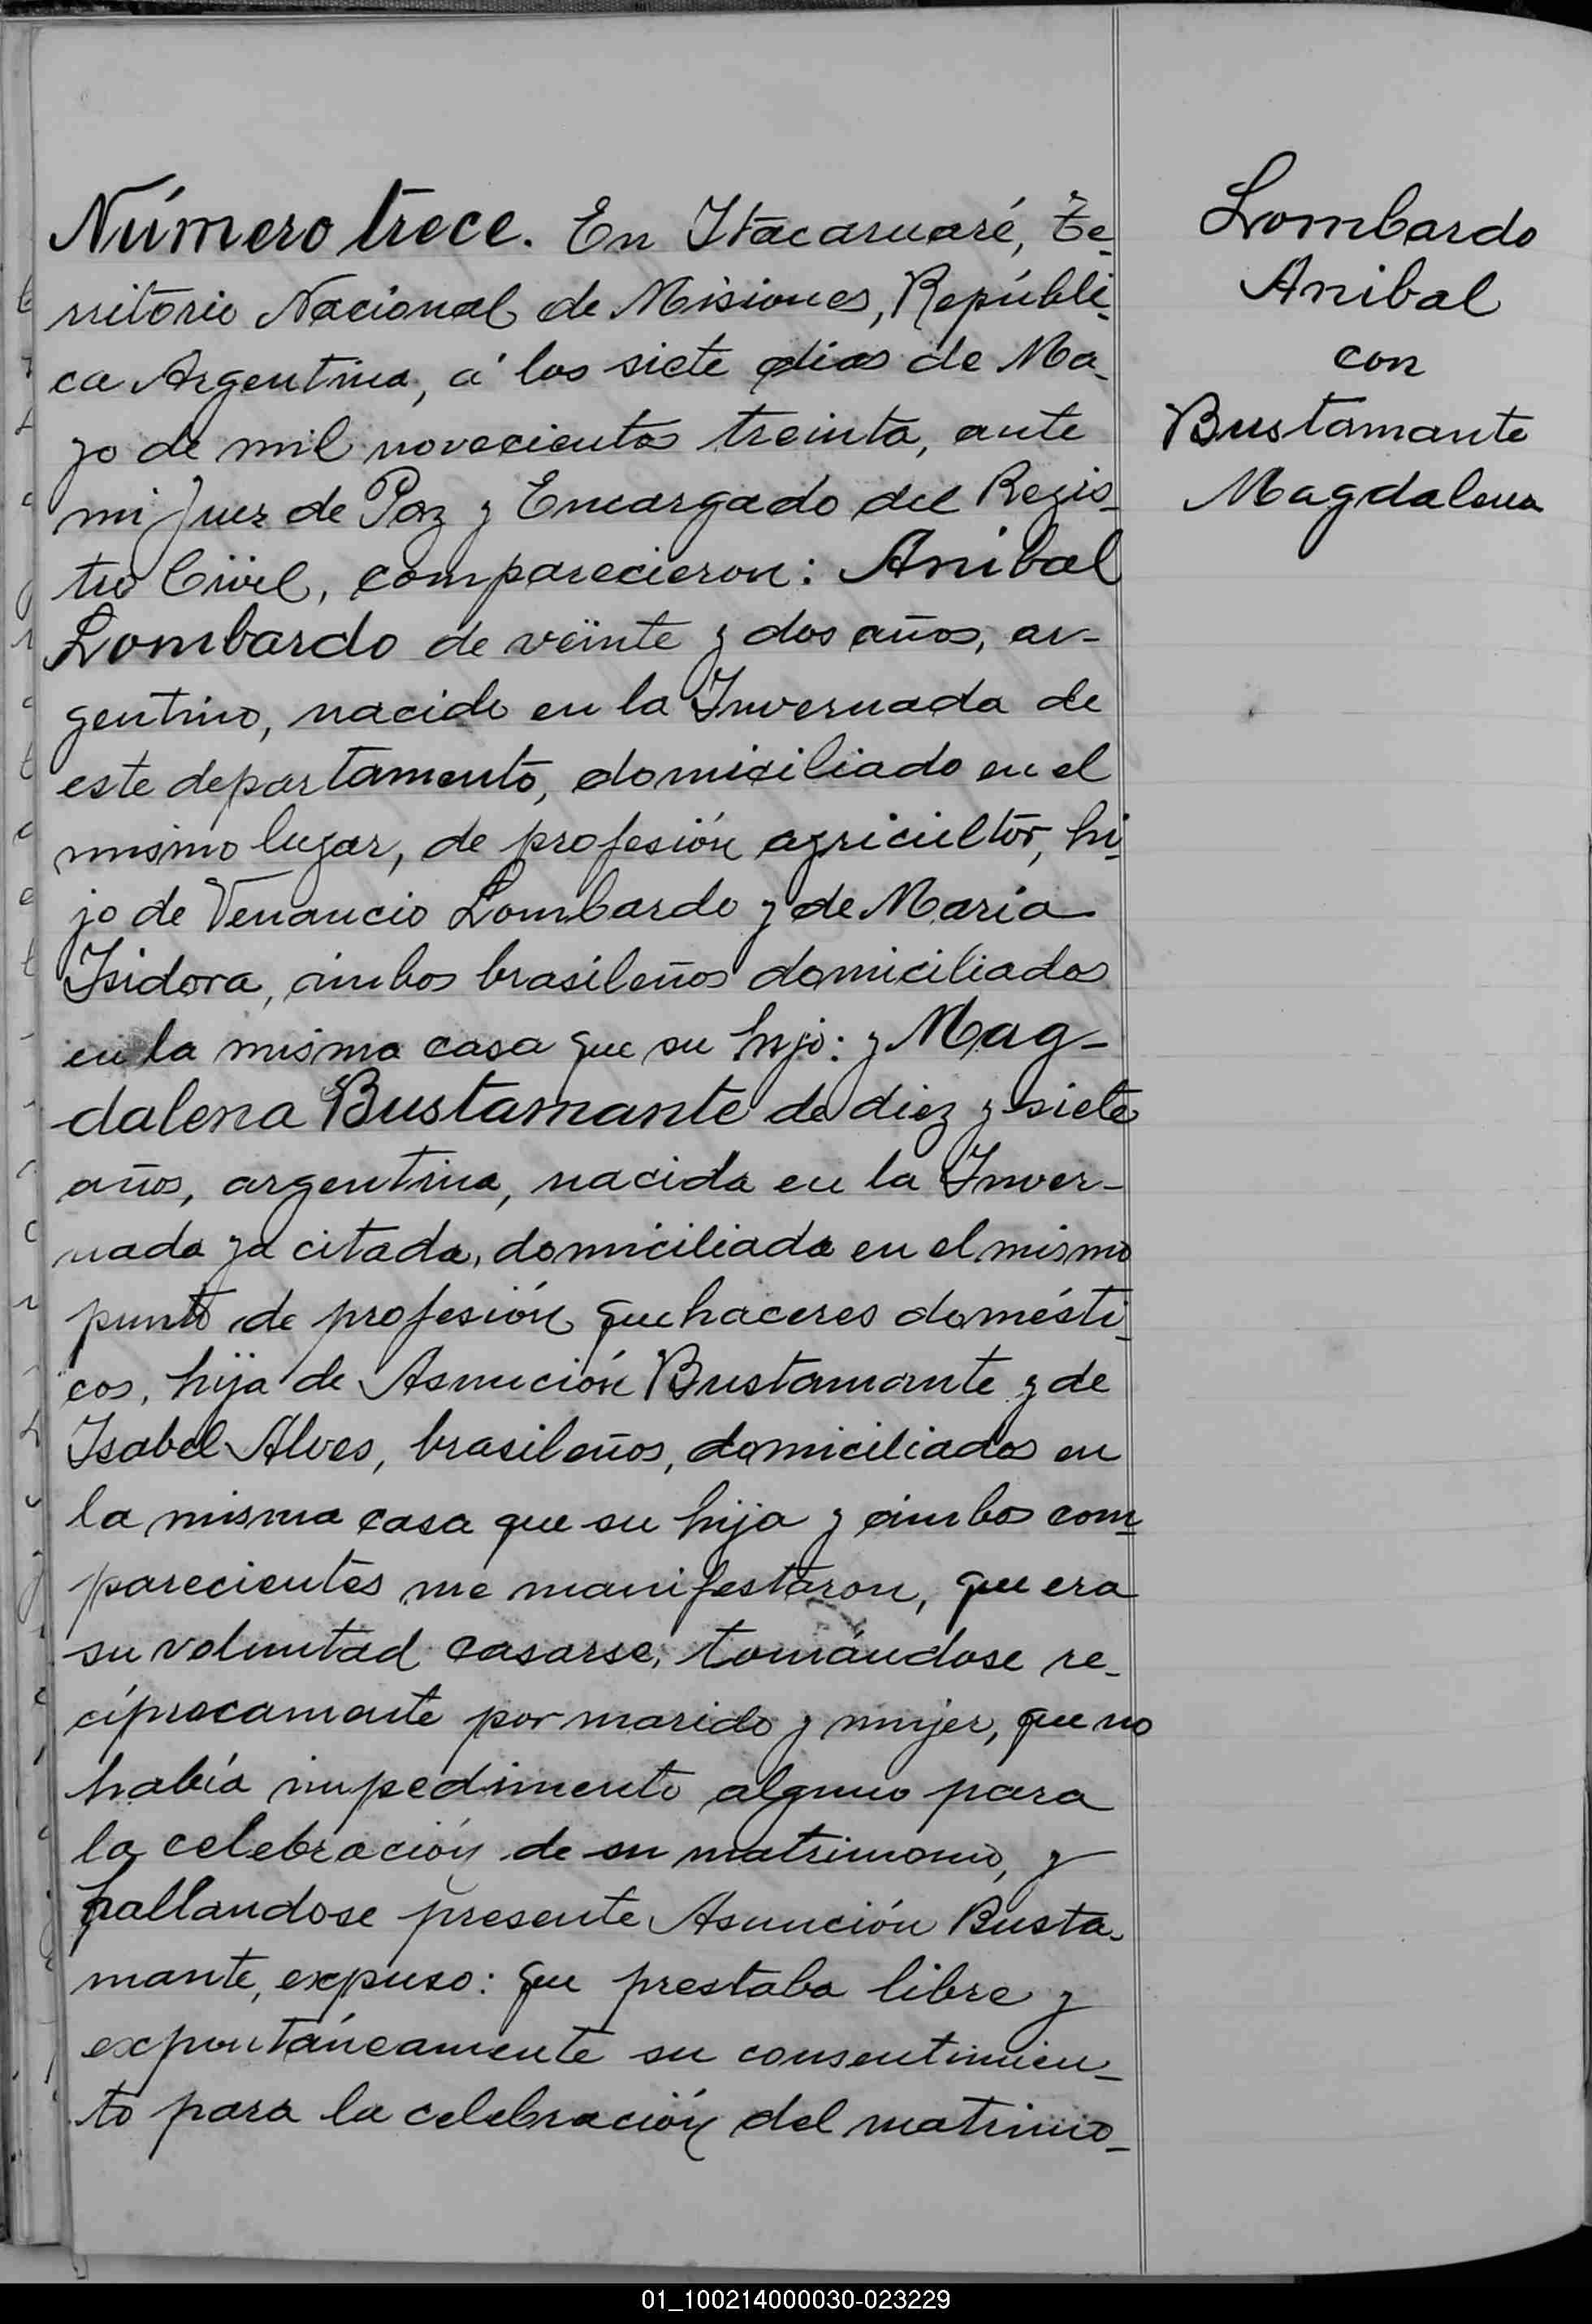 Número trece. En Itacaruaré, Te-
rritorio Nacional de Misiones, Repúbli-
ca Argentina, á los siete dias de Ma-
yo de mil novecientos treinta, ante
mi Juez de Paz y Encargado del Regis-
tro Civil, comparecieron: Anibal
Lombardo de veinte y dos años, ar-
gentino, nacido en la Invernada de
este departamento, domiciliado en el
mismo lugar, de profesión agricultor, hi-
jo de Venancio Lombardo y de Maria
Isidora, ambos brasileños domiciliados
en la misma casa que su hijo: y Mag-
dalena Bustamante de diez y siete
años, argentina, nacida en la Inver-
nada ya citada, domiciliada en el mismo
punto de profesión quehaceres domésti-
cos, hija de Asunción Bustamante y de
Isabel Alves, brasileños, domiciliados en
la misma casa que su hija y ambos com-
parecientes me manifestaron, que era
su voluntad casarse, tomándose re-
cíprocamente por marido y mujer, que no
había impedimento alguno para
la celebración de su matrimonio, y
hallandose presente Asunción Busta-
mante, expuso: que prestaba libre y
expontáneamente su consentimien-
to para la celebración del matrimo-
Lombardo
Anibal
con
Bustamante
Magdalena
01_100214000030-023229